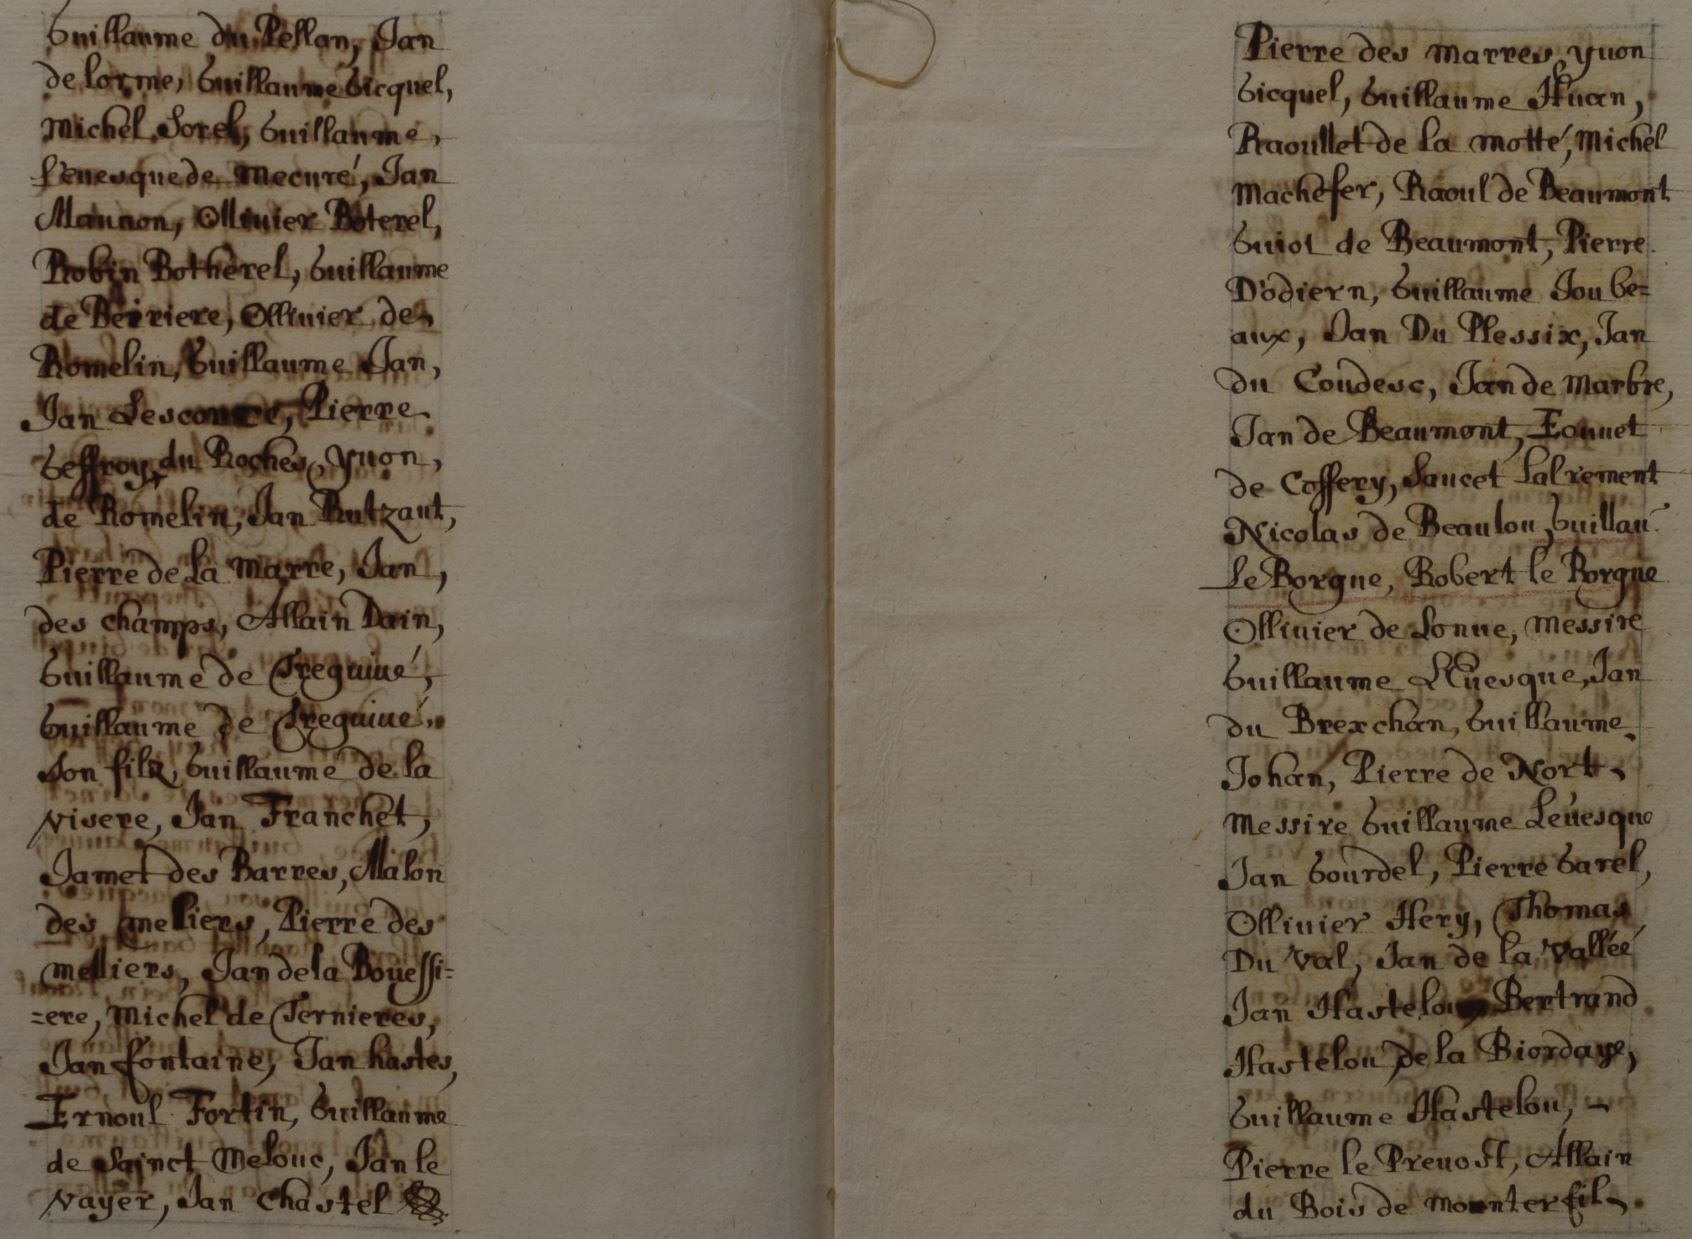 Guillaume du Pellan, Jan
de lorme, Guillaume Gicquel,
Michel Sorel, Guillaume,
l'euesque de Mecuré, Jan
Maunon, Ollivier Boterel,
Robin Botherel, Guillaume
de Berriere, Ollivier de
Romelin, Guillaume Jan,
Jan Lescouure, Pierre
Geffroy du Roches, yuon,
de Romelin, Jan Rutzaut,
Pierre de la Marre, Jan,
des champs, Allain Dain,
Guillaume de Treguiué,
Guillaume de Treguiué,
son filz, Guillaume de la
visere, Jan Franchet,
Jamet des Barres, Malon
des meliers, Pierre des
melliers, Jan de la Bouessi=
=ere, Michel de Ternieres,
Jan fontaine, Jan hastes,
Ernoul Fortin, Guillaume
de Sainct Melouc, Jan le
vayer, Jan Chastel
Pierre des marres, yuon
Gicquel, Guillaume Huan,
Raoullet de la motté, Michel
Machefer, Raoul de Beaumont
Guiot de Beaumont, Pierre
D'odiern, Guillaume Joube=
aux, Jan Du Plessix, Jan
du Coudesc, Jan de Marbre,
Jan de Beaumont, Eonnet
de Coffery, Saucet Lalrement
Nicolas de Beaulou, Guillau
le Borgne, Robert le Borgne
Ollivier de Lonue, Messire
Guillaume LEuesque, Jan
du Brexchan, Guillaume
Johan, Pierre de Nort
Messire Guillaume Leuesque
Jan Gourdel, Pierre Garel,
Ollivier Hery, Thomas
Du Val, Jan de la Vallée
Jan Hastelou, Bertrand
Hastelou de la Biordaye,
Guillaume Hastelou,
Pierre le Preuost, Allain
du Bois de Monterfil